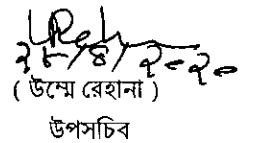 ২৮/৪/২০২০
( উম্মে রেহানা )
উপসচিব